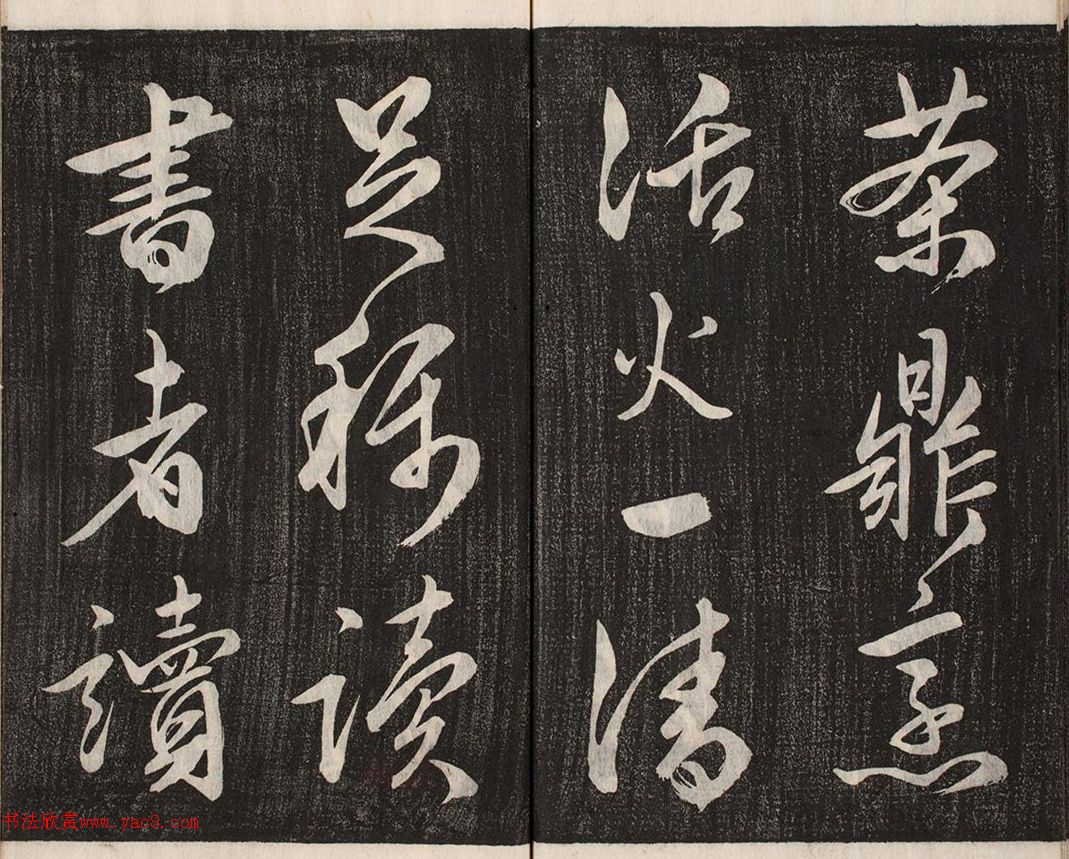 茶鼎烹
活火一清
足称讀
書者讀
书法欣赏www.yac8.com